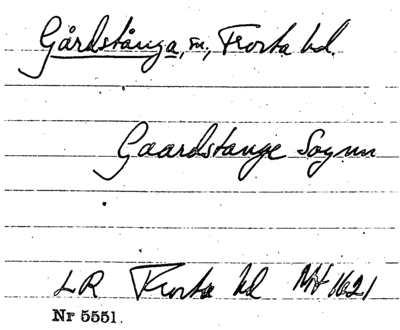 Gårdstånga, sn, Frosta hd.
Gaardstange Sognn
LR Frosta hd Mt 1621
Nr 5551.